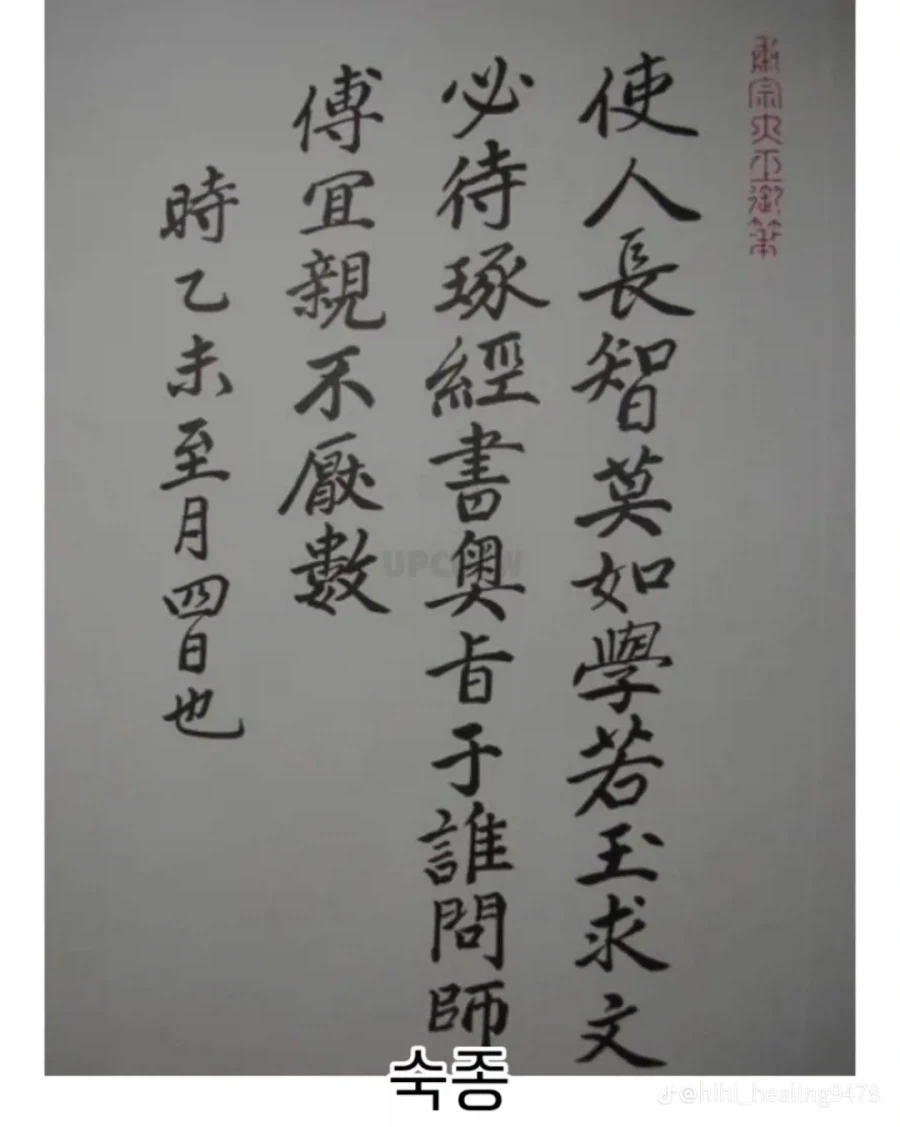 肅宗大王御筆
使人長智莫如學若玉求文
必待琢經書奧旨于誰問師
傅宜親不厭數
時乙未至月四日也
UPCOW
숙종
@hihi_healing9478